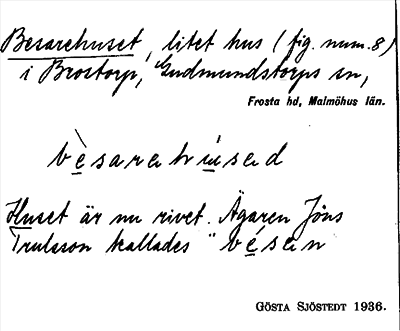 Besarehuset, litet hus (fig. num. 8)
i Brostorp, Gudmundstorps sn,
Frosta hd, Malmöhus län.
bèsarehúsed
Huset är nu rivet. Ägaren Jöns
Trulsson kallades "bésen
GÖSTA SJÖSTEDT 1936.